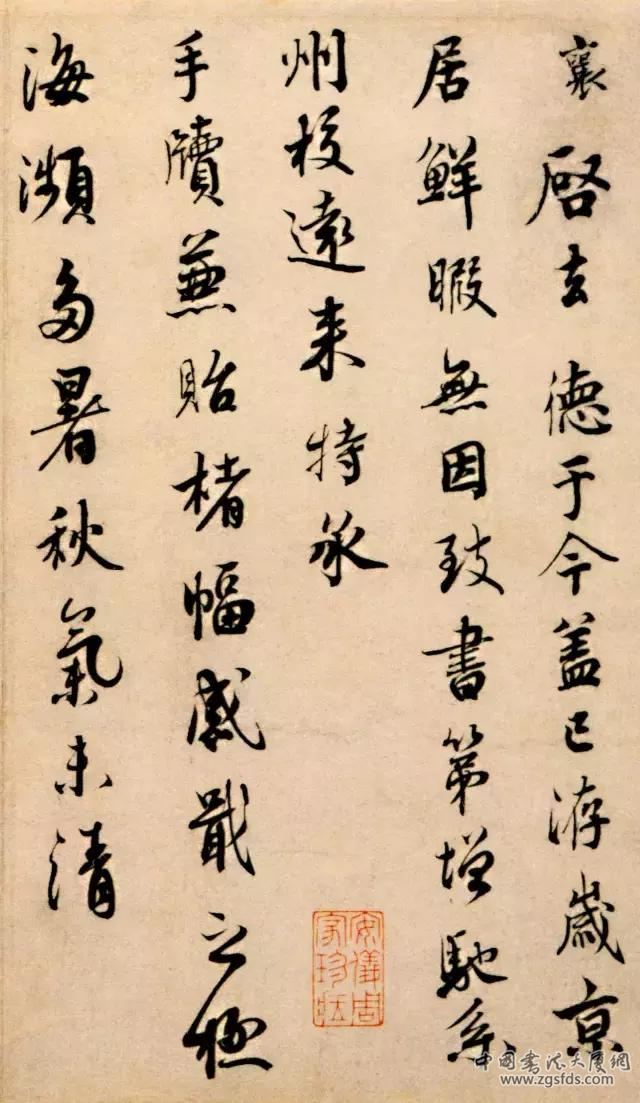 襄啓去德于今盖已洊歲京
居鮮暇無因致書第增馳系
州校遠来特承
手牘兼貽楮幅感戢之極
海瀕多暑秋氣未清
安儀周家珍蔵
中國書法大廈網
www.zgsfds.com